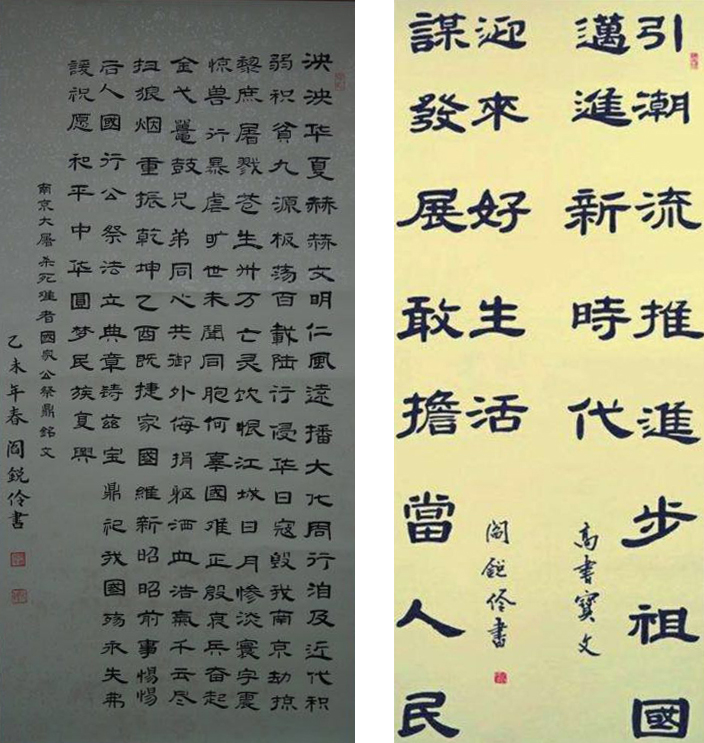 泱泱华夏赫赫文明仁風遠播大化周行洎及近代积
弱积貧九源板荡百載陆行侵华日寇毁我南京劫掠
黎庶屠戮苍生卅万亡灵饮恨江城日月惨淡寰宇震
惊兽行暴虐旷世未聞同胞何辜國难正殷哀兵奋起
金戈鼍鼓兄弟同心共御外侮捐躯洒血浩氣千云尽
扫狼烟重振乾坤乙酉既捷家國維新昭昭前事惕惕
后人國行公祭法立典章铸兹宝鼎祀我國殇永失弗
諼祝愿和平中华圓梦民族复興
南京大屠杀死难者國家公祭鼎銘文
乙未年春閻銳伶書
引潮流推進步祖國
邁進新時代
高書寶文
迎來好生活
閻銳伶書
謀發展敢擔當人民